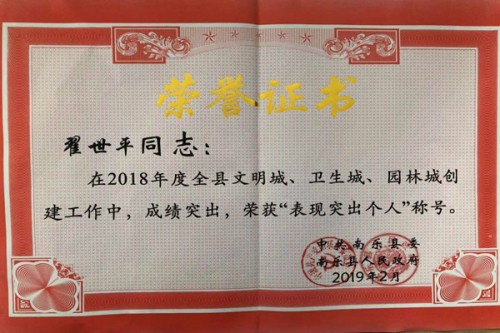 荣誉证书
翟世平同志：
在2018年度全县文明城、卫生城、园林城创
建工作中，成绩突出，荣获“表现突出个人”称号。
中共南乐县委
南乐县人民政府
2019年2月